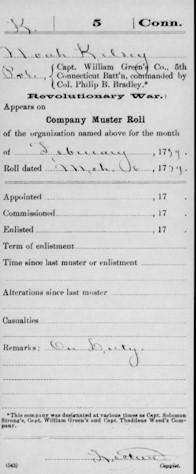 K. 5 Conn.
Noah Kelsey
Capt. William Green's Co., 5th
Connecticut Batt'n, commanded by
Col. Philip B. Bradley.*
Revolutionary War.
Appears on
Company Muster Roll
of the organization named above for the month
of February, 1779.
Roll dated Mch. 6, 1779.
Appointed , 17 .
Commissioned , 17 .
Enlisted , 17 .
Term of enlistment
Time since last muster or enlistment
Alterations since last muster
Casualties
Remarks: On Duty.
*This company was designated at various times as Capt. Solomon
Strong's, Capt. William Green's and Capt. Thaddeus Weed's Com-
pany.
(543) Copyist.